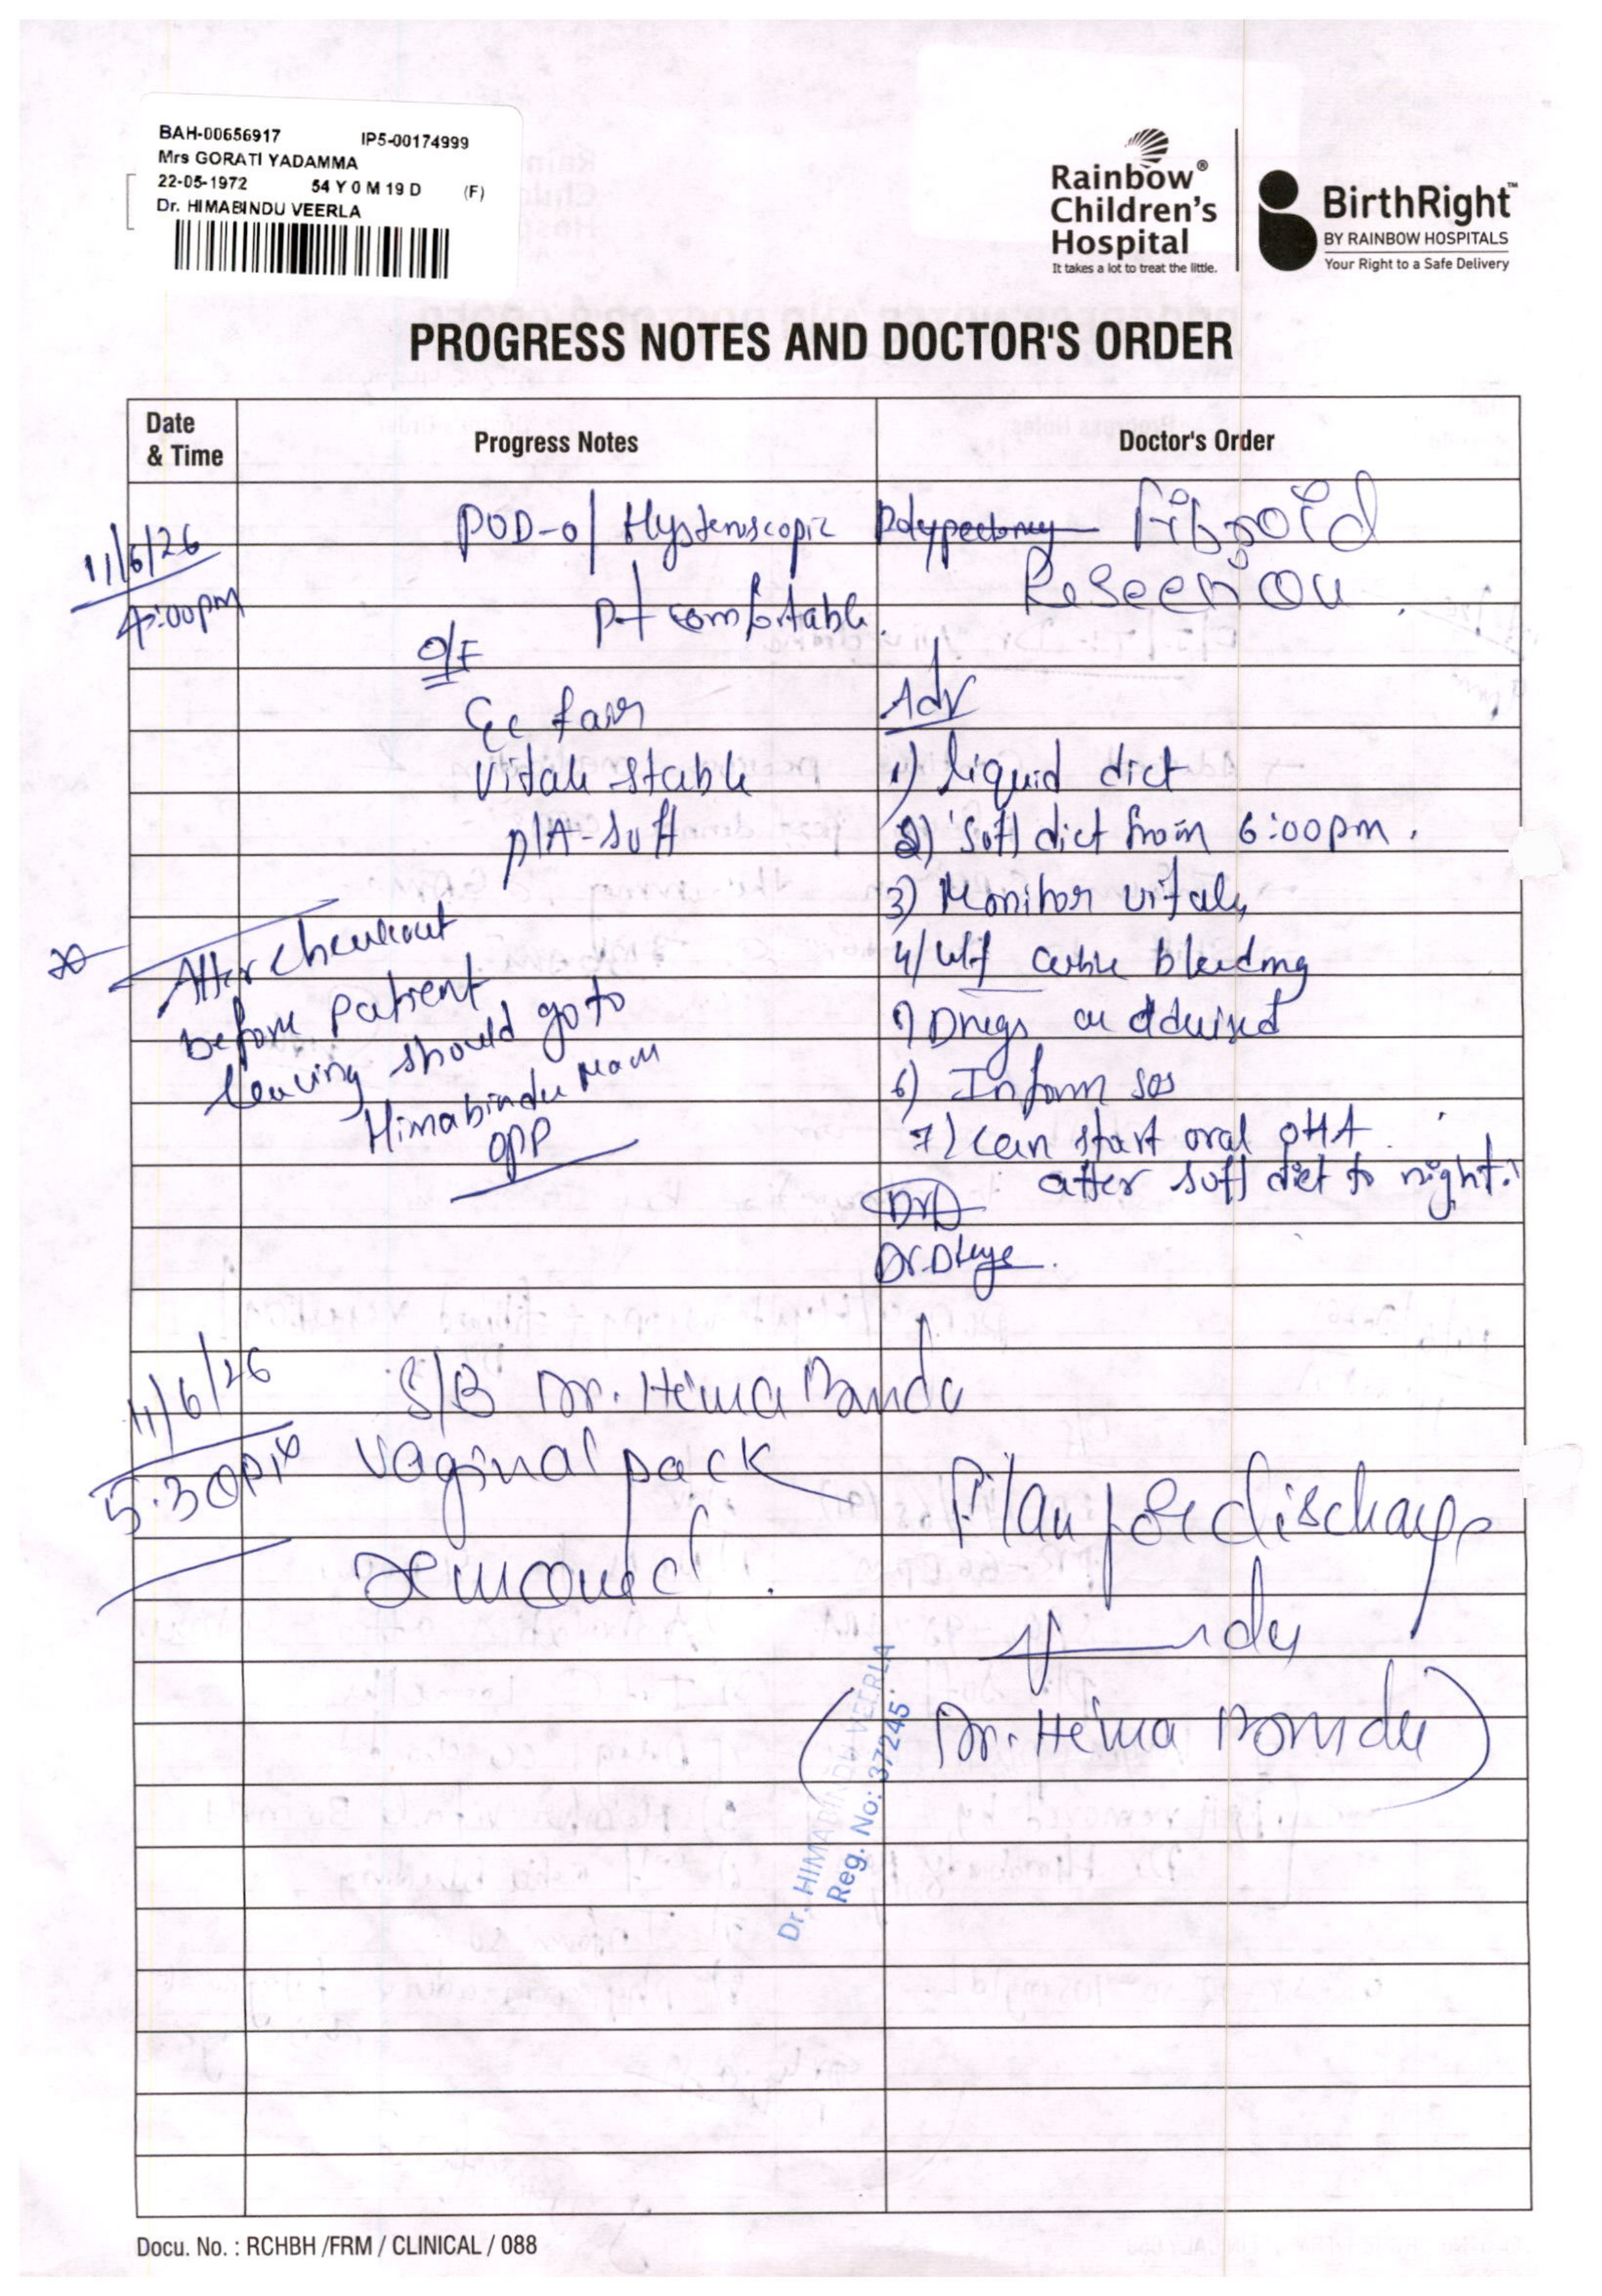 BAH-00656917 IP5-00174999
Mrs GORATI YADAMMA
22-05-1972 54 Y 0 M 19 D (F)
Dr. HIMABINDU VEERLA
Rainbow®
Children's
Hospital
It takes a lot to treat the little.
BirthRight™
BY RAINBOW HOSPITALS
Your Right to a Safe Delivery
PROGRESS NOTES AND DOCTOR'S ORDER
Date
& Time
Progress Notes
Doctor's Order
11/6/26
4:00pm
POD-0/ Hysteroscopic Polypectomy Fibroid
Resection
pt comfortable.
O/E
Gc fair
Vitals stable
P/A-soft
Adv
1) liquid diet
2) Soft diet from 6:00pm.
3) Monitor vitals
4) W/f active bleeding
5) Drugs as advised
6) Inform sos
7) Can start oral OHA
after soft diet to night.
Dr. Divya.
After checkout
before patient
leaving should go to
Himabindu Mam
OPD
11/6/26
5:30pm
S/B Dr. Hima Bindu
Vaginal pack
removed.
Plan for discharge
(Dr. Hima Bindu)
Dr. HIMABINDU VEERLA
Reg. No: 37245
Docu. No. : RCHBH /FRM / CLINICAL / 088